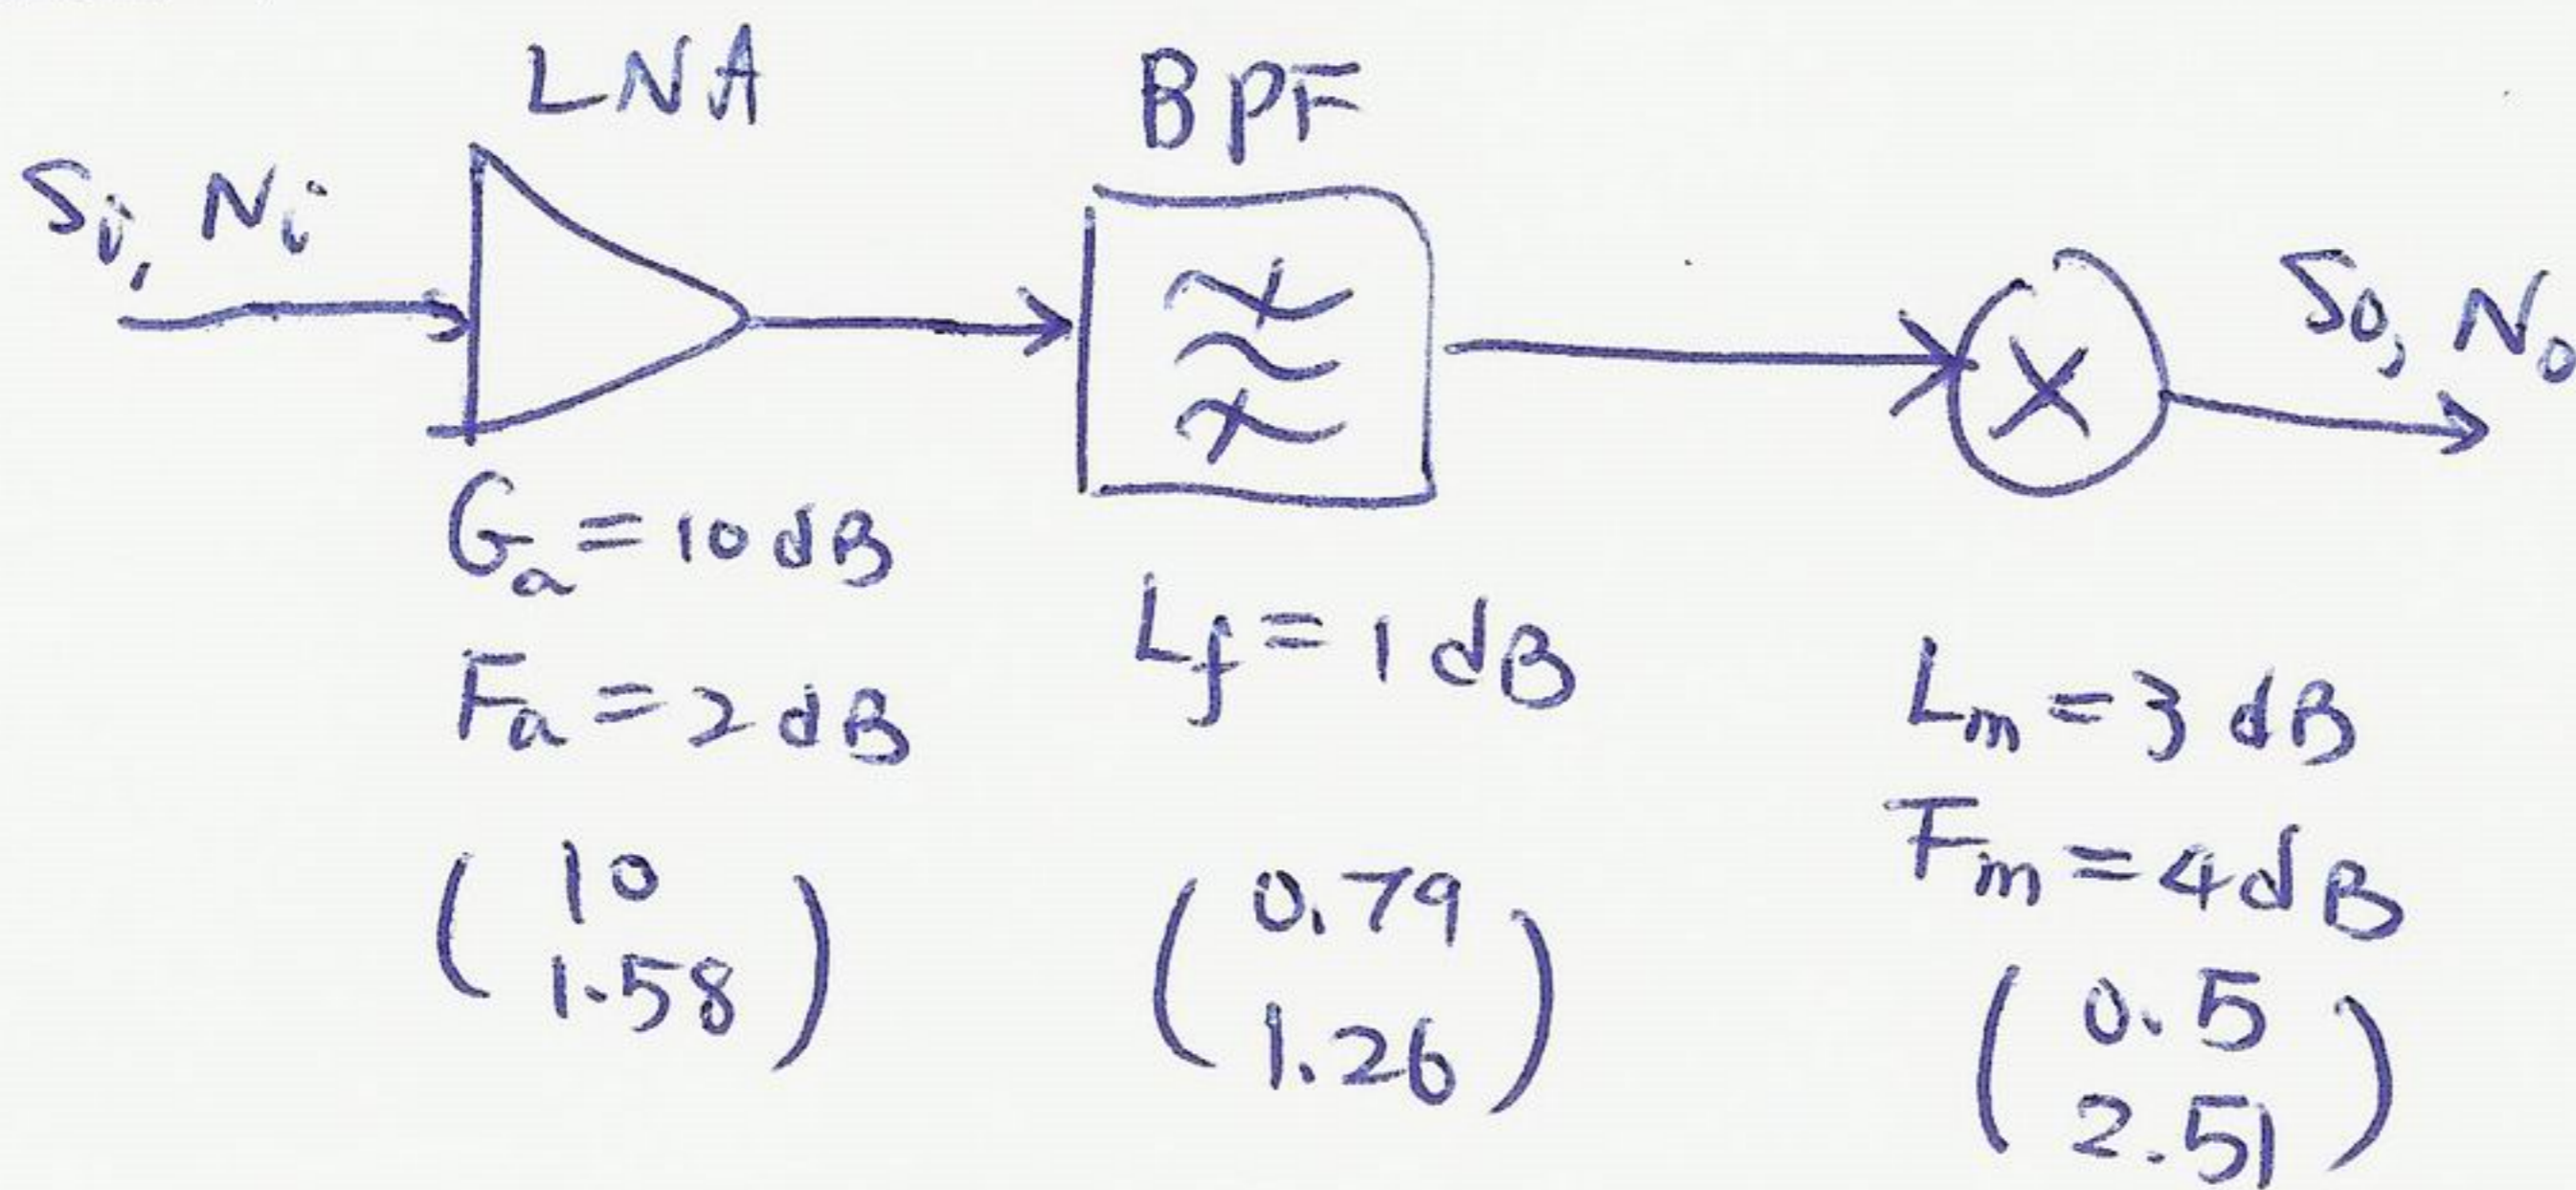 LNA
BPF
Si, Ni
So, No
Ga = 10 dB
Fa = 2 dB
(10
1.58)
Lf = 1 dB
(0.79
1.26)
Lm = 3 dB
Fm = 4 dB
(0.5
2.51)